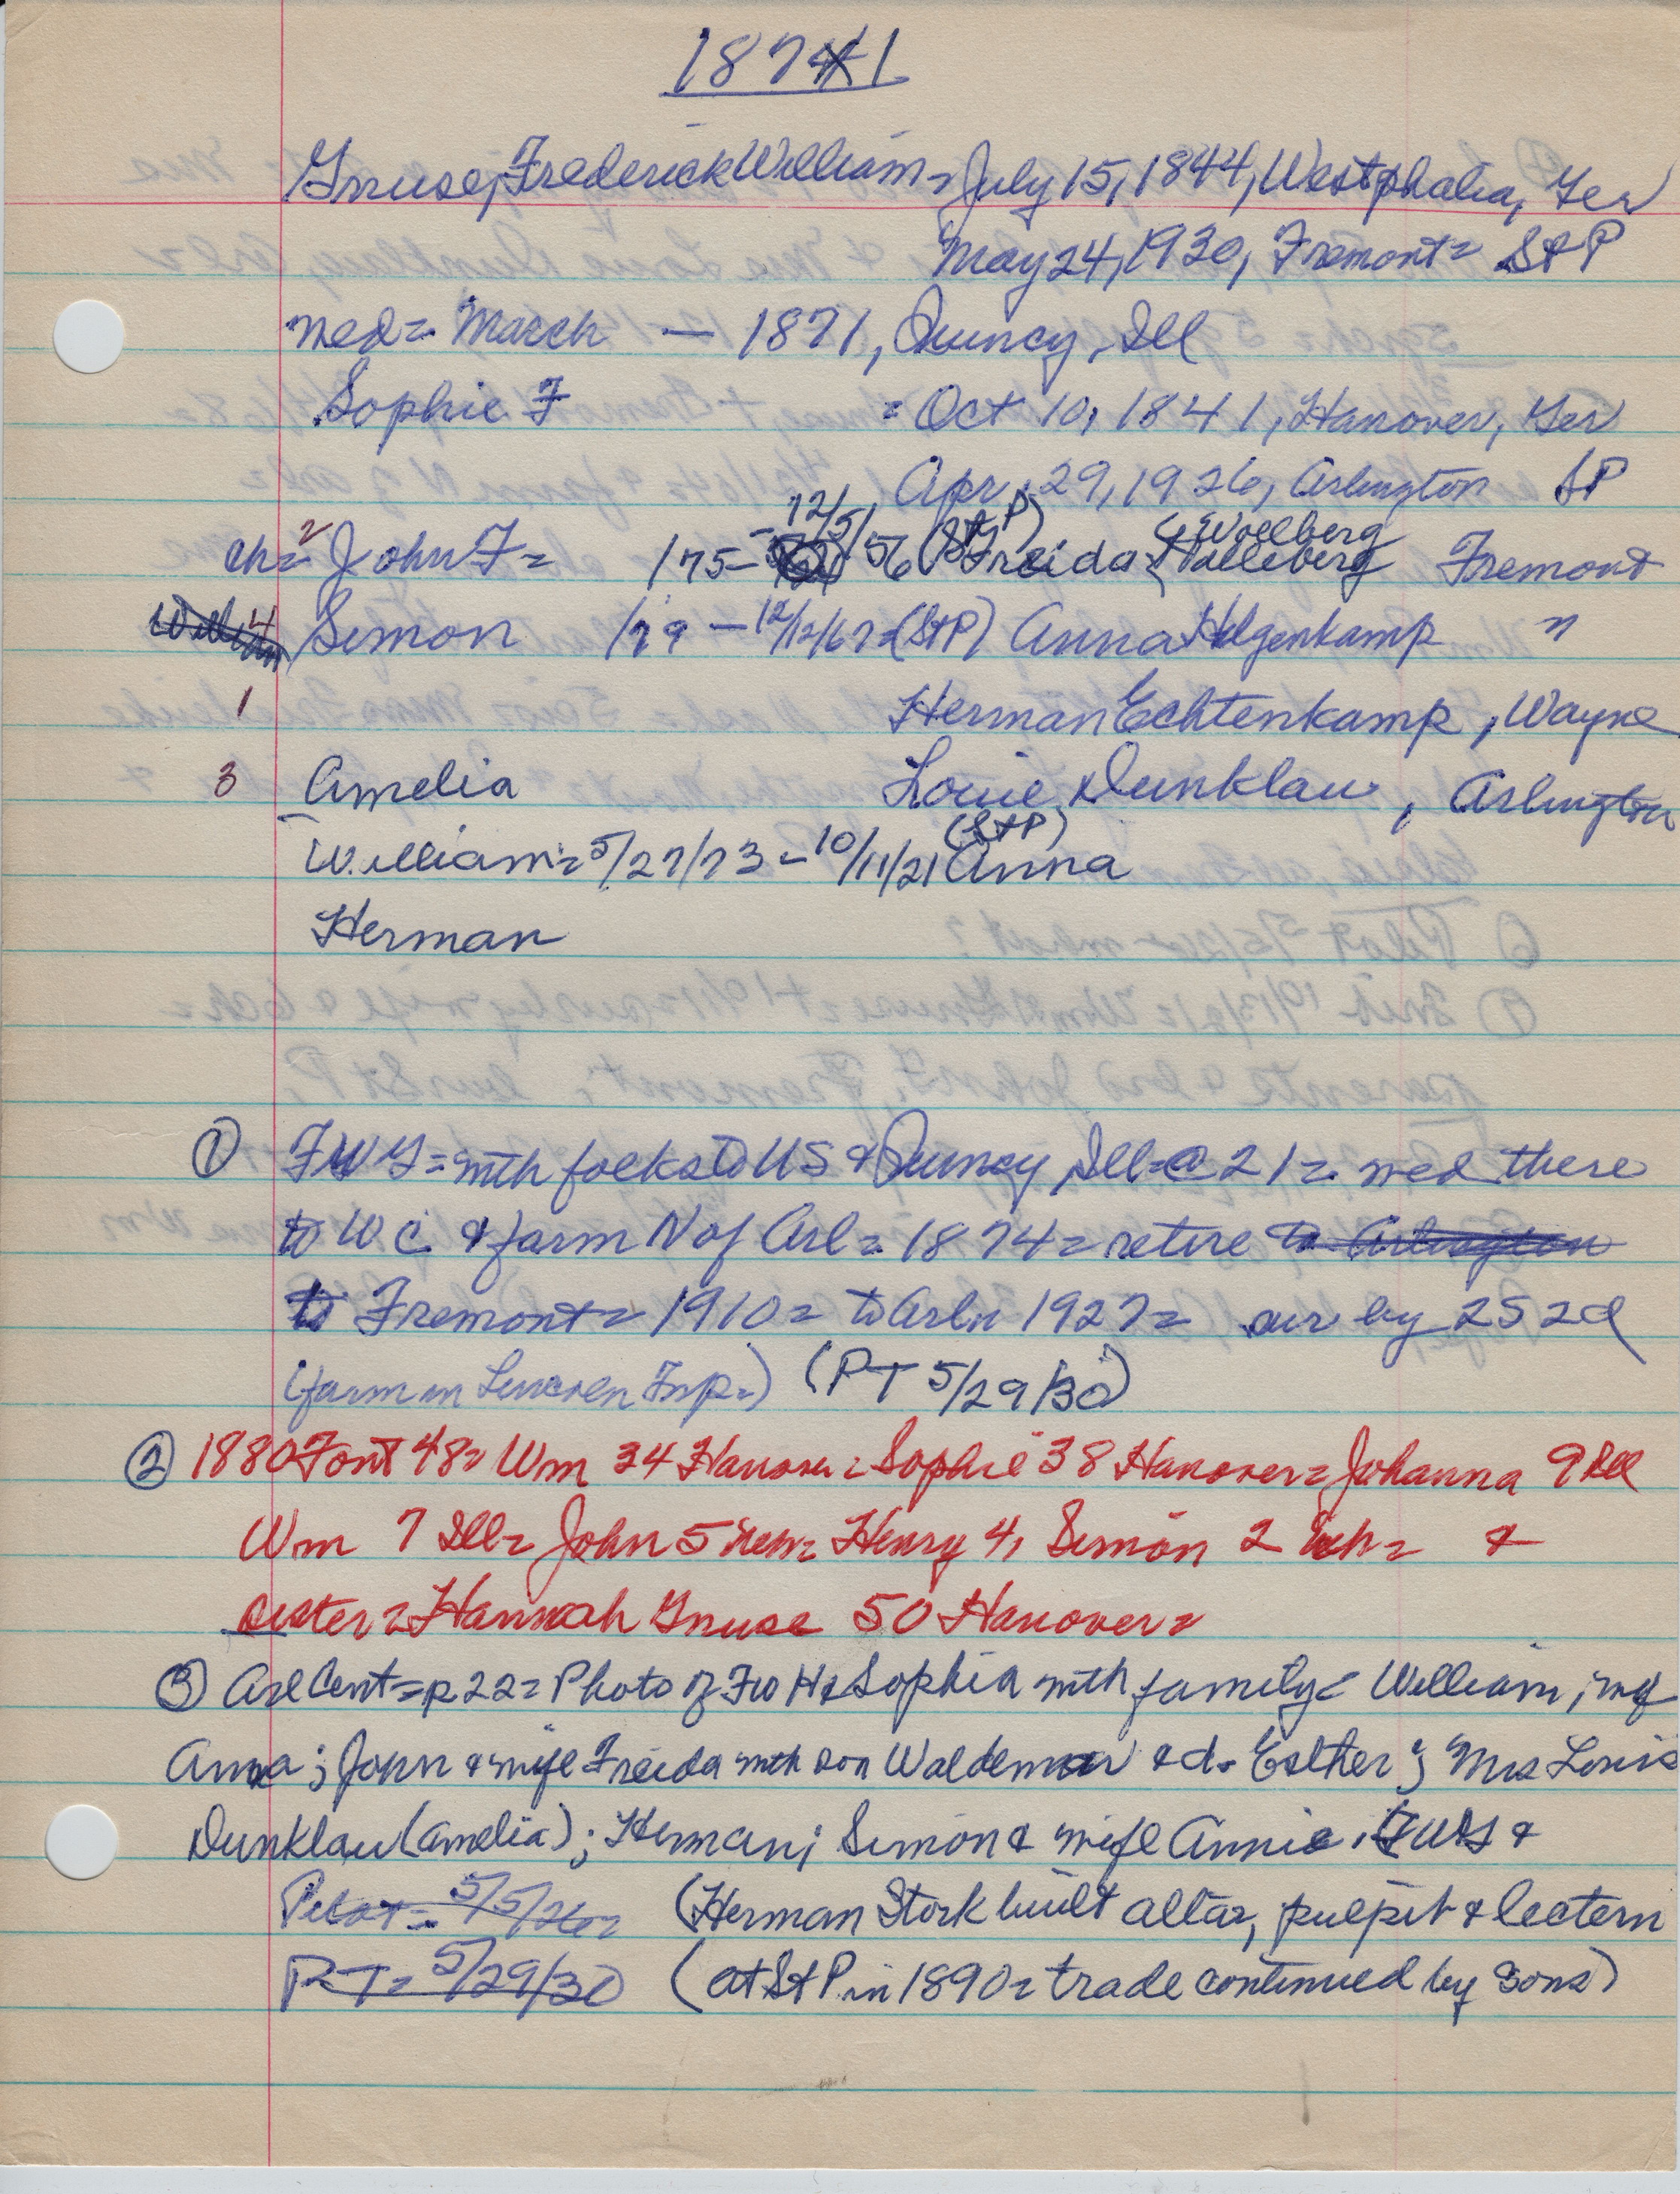 1874 1
Gnuse, Frederick William = July 15, 1844, Westphalia, Ger
May 24, 1930, Fremont = St P
wed = March — 1871, Quincy, Ill
Sophie F = Oct 10, 1841, Hanover, Ger
Apr. 29, 1926, Arlington St P
ch = 2 John F = /75 - 12/5/56 (St P) Freida (Woelberg Walleberg Fremont
William 4 Simon /79 - 12/12/67 = (St P) Anna Hilgenkamp "
1 Herman Echtenkamp, Wayne
3 Amelia Louie Dunklau, Arlington
William = 5/27/73 - 10/11/21 (St P) Anna
Herman
① FWG = with folks to US & Quincy Ill = @ 21 = wed there
to WC & farm N of Arl = 1874 = retire to Arlington
to Fremont = 1910 = to Arl = 1927 = sur by 2s 2d
(farm in Lincoln Twp.) (PT 5/29/30)
② 1880 Font 48 = Wm 34 Hanover = Sophie 38 Hanover = Johanna 9 Ill
Wm 7 Ill = John 5 Neb = Henry 4, Simon 2 Neb = &
sister = Hannah Gnuse 50 Hanover =
③ Arl Cent = p 22 = Photo of FW & Sophia with family = William, wf
Anna; John & wife Freida with son Waldemar & d. Esther; Mrs Louis
Dunklau (Amelia); Herman; Simon & wife Annie. FWG &
Pilot = 5/5/26 = (Herman Stork built altar, pulpit & lectern
PT = 5/29/30 (at St P in 1890 = trade continued by sons)